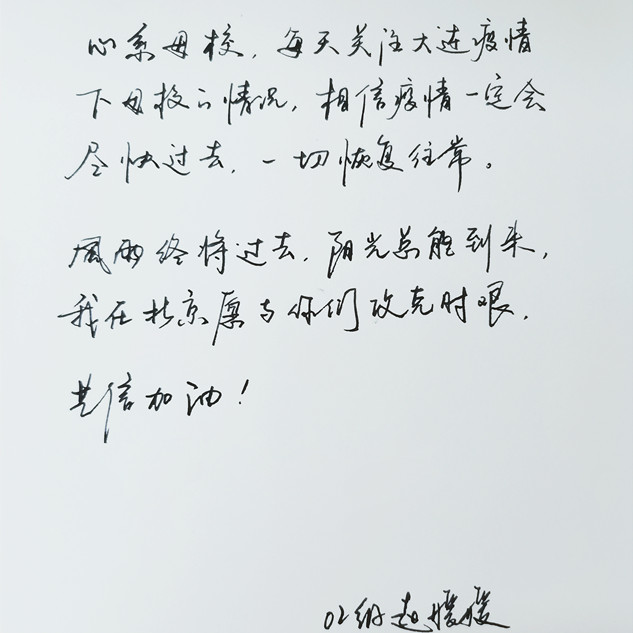 心系母校，每天关注大连疫情
下母校的情况，相信疫情一定会
尽快过去，一切恢复往常。
風雨终将过去，阳光总能到来，
我在北京愿与你们攻克时艰，
共信加油！
02级赵媛媛